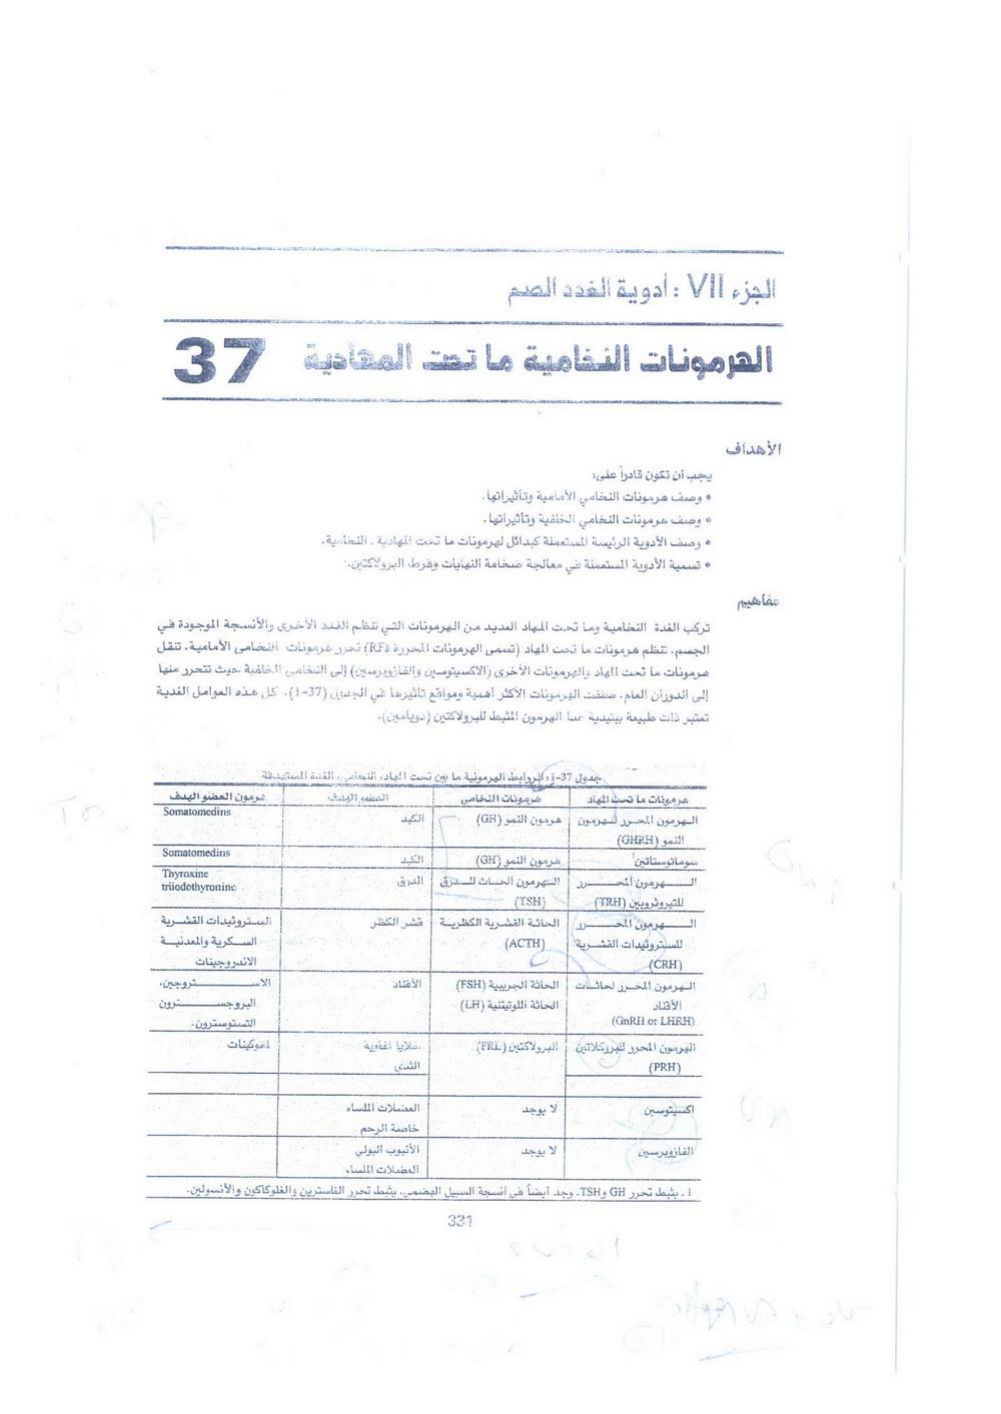 الجزء VII : أدوية الغدد الصم
الهرمونات النخامية ما تحت المهادية 37
الأهداف
يجب أن تكون قادراً على:
• وصف هرمونات النخامي الأمامية وتأثيراتها.
• وصف هرمونات النخامي الخلفية وتأثيراتها.
• وصف الأدوية الرئيسة المستعملة كبدائل لهرمونات ما تحت المهادية ـ النخامية.
• تسمية الأدوية المستعملة في معالجة ضخامة النهايات وفرط البرولاكتين.
مفاهيم
تركب الغدة النخامية وما تحت المهاد العديد من الهرمونات التي تنظم الغدد الأخرى والأنسجة الموجودة في
الجسم. تنظم هرمونات ما تحت المهاد (تسمى الهرمونات المحررة RFs) تحرر هرمونات النخامى الأمامية. تنقل
هرمونات ما تحت المهاد والهرمونات الأخرى (الاكسيتوسين والفازوبرسين) إلى النخامى الخلفية حيث تتحرر منها
إلى الدوران العام. صنفت الهرمونات الأكثر أهمية ومواقع تأثيرها في الجدول (37-1). كل هذه العوامل الغدية
تعتبر ذات طبيعة ببتيدية عدا الهرمون المثبط للبرولاكتين (دوبامين).
جدول 37-1: الروابط الهرمونية ما بين تحت المهاد، النخامى، الغدة المستهدفة
هرمونات ما تحت المهاد هرمونات النخامى العضو الهدف هرمون العضو الهدف
الهرمون المحرر لهرمون هرمون النمو (GH) الكبد Somatomedins
النمو (GHRH)
سوماتوستاتين¹ هرمون النمو (GH) الكبد Somatomedins
الهرمون المحرر الهرمون الحاث للدرق الدرق Thyroxine
للتيروتروبين (TRH) (TSH) triiodothyronine
الهرمون المحرر الحاثة القشرية الكظرية قشر الكظر الستروئيدات القشرية
للستروئيدات القشرية (ACTH) السكرية والمعدنية
(CRH) الاندروجينات
الهرمون المحرر لحاثات الحاثة الجريبية (FSH) الأقناد الاستروجين،
الأقناد الحاثة اللوتيئنية (LH) البروجسترون
(GnRH or LHRH) التستوسترون.
الهرمون المحرر للبرولاكتين البرولاكتين (PRL) خلايا لمفاوية لمفوكينات
(PRH) الثدي
اكسيتوسين لا يوجد العضلات الملساء
خاصة الرحم
الفازوبرسين لا يوجد الأنبوب البولي
العضلات الملساء
1 ـ يثبط تحرر GH وTSH. وجد أيضاً في أنسجة السبيل الهضمي. يثبط تحرر الغاسترين والغلوكاكون والأنسولين.
331